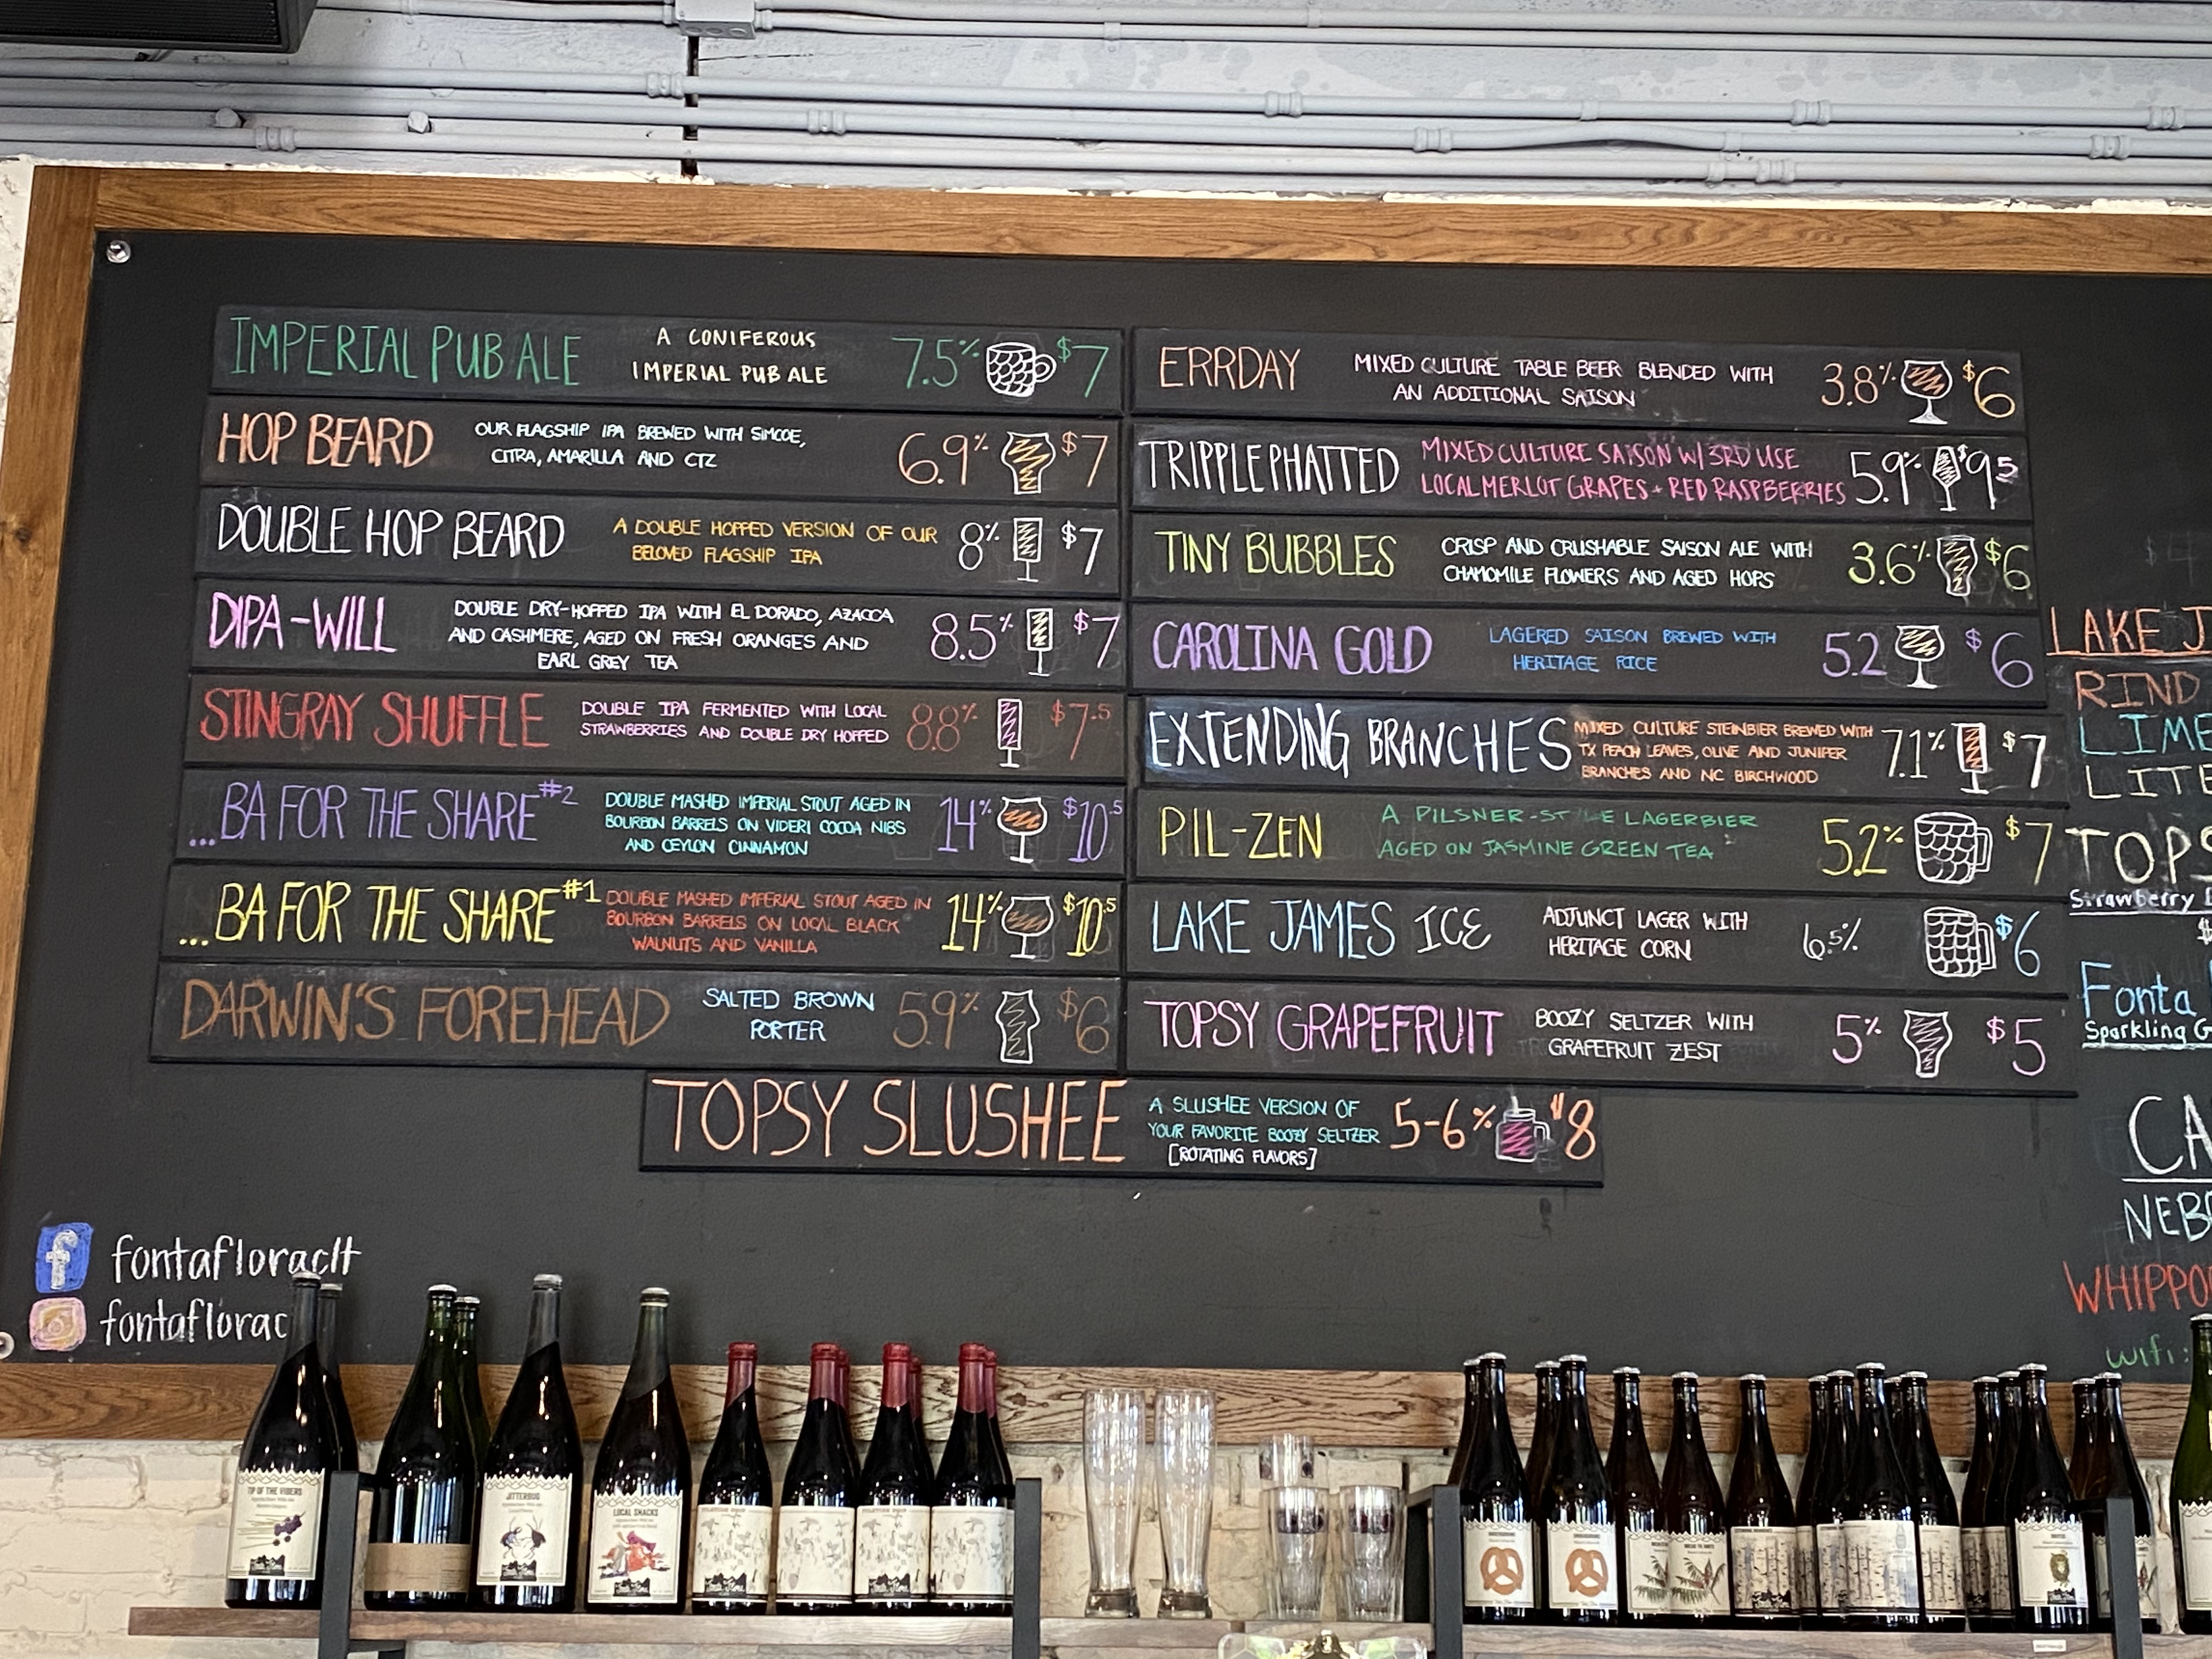 IMPERIAL PUB ALE
A CONIFEROUS
IMPERIAL PUB ALE
7.5% $7
HOP BEARD
OUR FLAGSHIP IPA BREWED WITH SIMCOE,
CITRA, AMARILLA AND CTZ
6.9% $7
DOUBLE HOP BEARD
A DOUBLE HOPPED VERSION OF OUR
BELOVED FLAGSHIP IPA
8% $7
DIPA-WILL
DOUBLE DRY-HOPPED IPA WITH EL DORADO, AZACCA
AND CASHMERE, AGED ON FRESH ORANGES AND
EARL GREY TEA
8.5% $7
STINGRAY SHUFFLE
DOUBLE IPA FERMENTED WITH LOCAL
STRAWBERRIES AND DOUBLE DRY HOPPED
8.8% $7.5
...BA FOR THE SHARE #2
DOUBLE MASHED IMPERIAL STOUT AGED IN
BOURBON BARRELS ON VIDERI COCOA NIBS
AND CEYLON CINNAMON
14% $10.5
...BA FOR THE SHARE #1
DOUBLE MASHED IMPERIAL STOUT AGED IN
BOURBON BARRELS ON LOCAL BLACK
WALNUTS AND VANILLA
14% $10.5
DARWIN'S FOREHEAD
SALTED BROWN
PORTER
5.9% $6
ERRDAY
MIXED CULTURE TABLE BEER BLENDED WITH
AN ADDITIONAL SAISON
3.8% $6
TRIPPLEPHATTED
MIXED CULTURE SAISON W/ 3RD USE
LOCAL MERLOT GRAPES + RED RASPBERRIES
5.9% $9.5
TINY BUBBLES
CRISP AND CRUSHABLE SAISON ALE WITH
CHAMOMILE FLOWERS AND AGED HOPS
3.6% $6
CAROLINA GOLD
LAGERED SAISON BREWED WITH
HERITAGE RICE
5.2 $6
EXTENDING BRANCHES
MIXED CULTURE STEINBIER BREWED WITH
TX PEACH LEAVES, OLIVE AND JUNIPER
BRANCHES AND NC BIRCHWOOD
7.1% $7
PIL-ZEN
A PILSNER-STYLE LAGERBIER
AGED ON JASMINE GREEN TEA
5.2% $7
LAKE JAMES ICE
ADJUNCT LAGER WITH
HERITAGE CORN
6.5% $6
TOPSY GRAPEFRUIT
BOOZY SELTZER WITH
GRAPEFRUIT ZEST
5% $5
TOPSY SLUSHEE
A SLUSHEE VERSION OF
YOUR FAVORITE BOOZY SELTZER
[ROTATING FLAVORS]
5-6% $8
LAKE J
RIND
LIME
LITE
TOPS
Strawberry
Fonta
Sparkling G
CA
NEB
WHIPPO
wifi:
fontafloraclt
fontaflorac
TIP OF THE VIBERS
JITTERBUG
LOCAL SNACKS